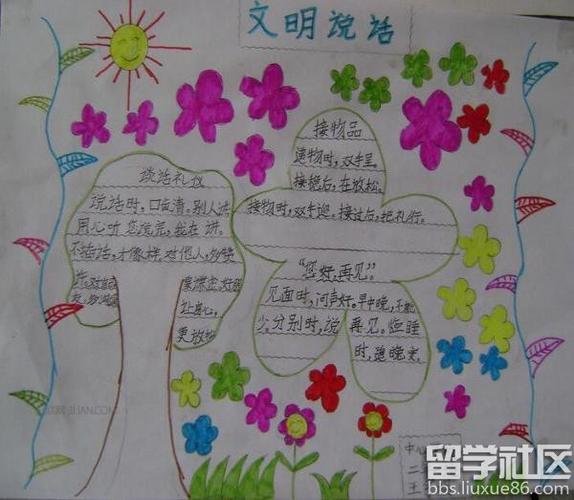 文明说话
谈话礼仪
说话时，口齿清。别人讲，
用心听。您说完，我在讲。
不插话，才像样。对他人，多赞
接物品
递物时，双手呈。
接稳后，在放松。
接物时，双手迎。接过后，把礼行。
“您好，再见”。
见面时，问声好。早中晚，不能
少。分别时，说再见。临睡
时，道晚安。
更放
中
二
王
留学社区
bbs.liuxue86.com